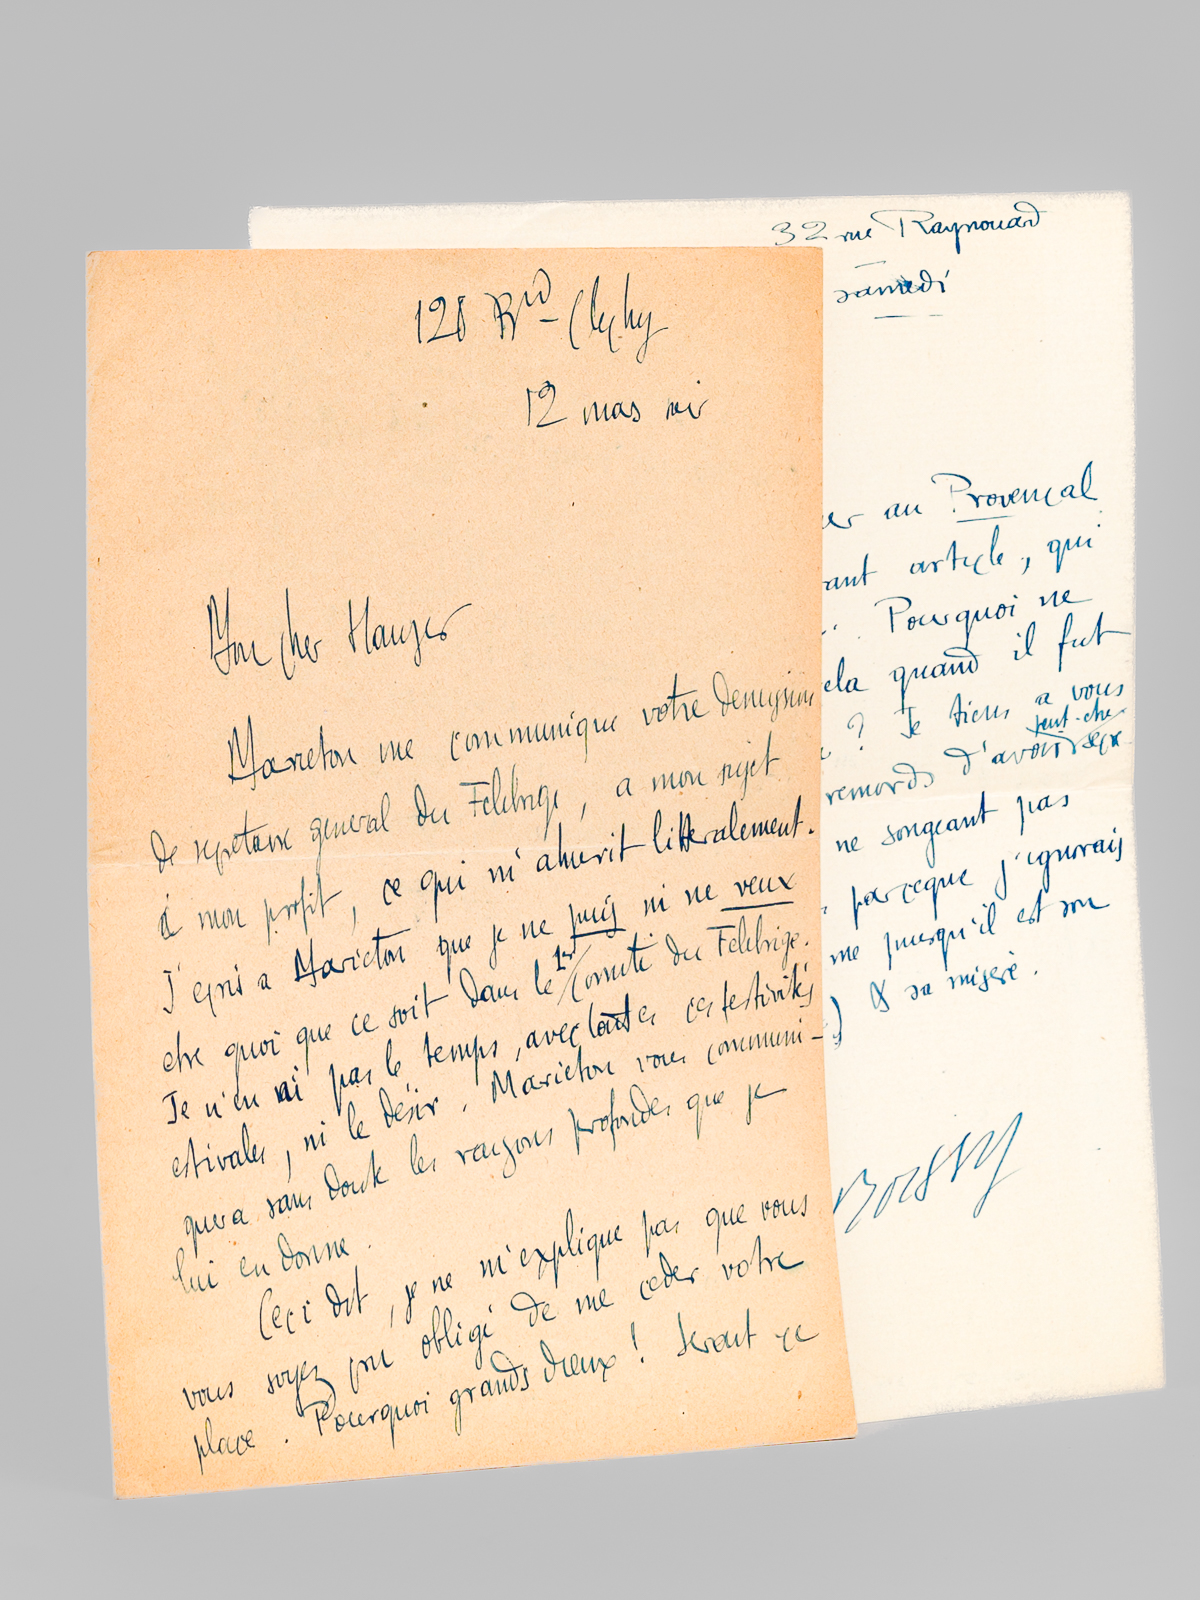 128 Bvd Clichy
12 mars
Mon cher Hauser
Marieton me communique votre demission
de secretaire general du Felibrige, a mon sujet
à mon profit, ce qui m'ahurit litteralement.
J'ecris a Marieton que je ne puis ni ne veux
etre quoi que ce soit dans le 1er Comité du Felibrige.
Je n'en ai pas le temps, avec toutes ces festivités
estivales, ni le désir. Marieton vous communi-
quera sans doute les raisons profondes que je
lui en donne.
Ceci dit, je ne m'explique pas que vous
vous soyez cru obligé de me ceder votre
place. Pourquoi grands dieux! Serait ce
32 rue Raynouard
samedi
er au Provençal
ant article, qui
. Pourquoi ne
ela quand il fut
? Je tiens a vous
peut-etre
remords d'avoir
ne songeant pas
parceque j'ignorais
me puisqu'il est son
) & sa misère.
Boissy